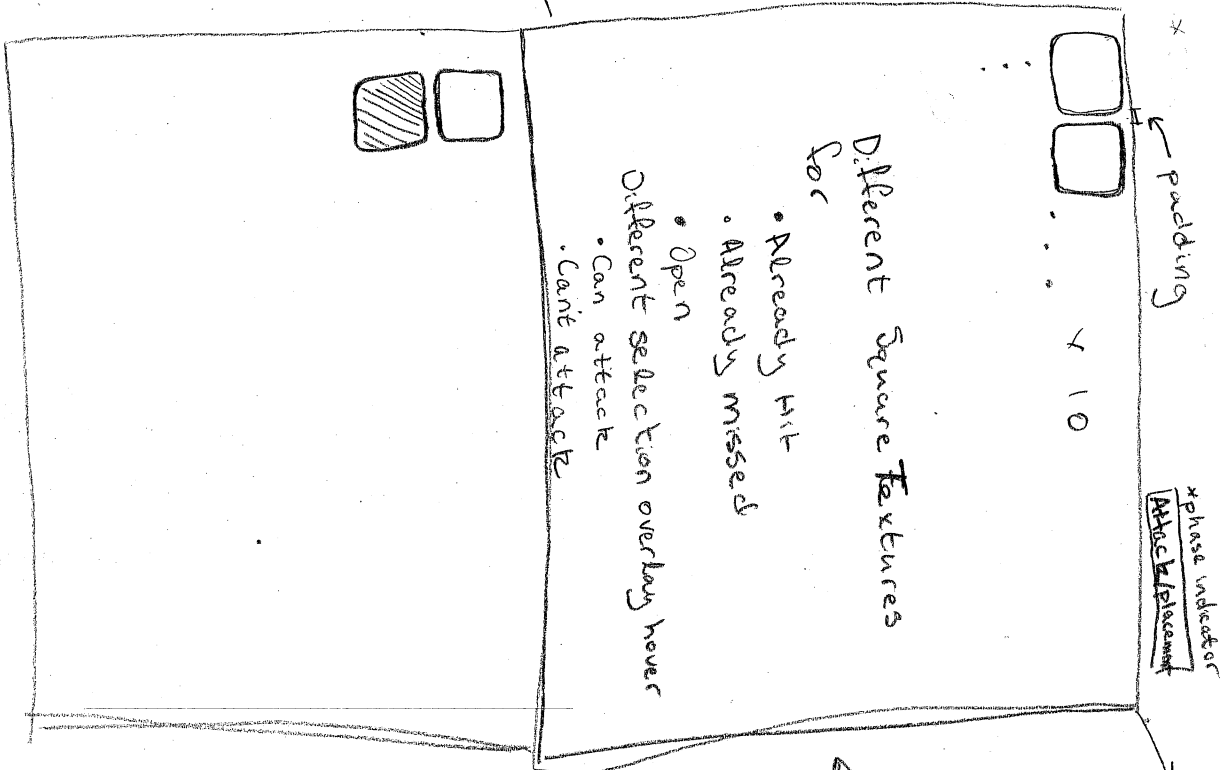 *phase indicator
Attack/placement
padding
x 10
Different Square Textures
for
• Already Hit
• Already missed
• Open
Different selection overlay hover
• Can attack
• Can't attack